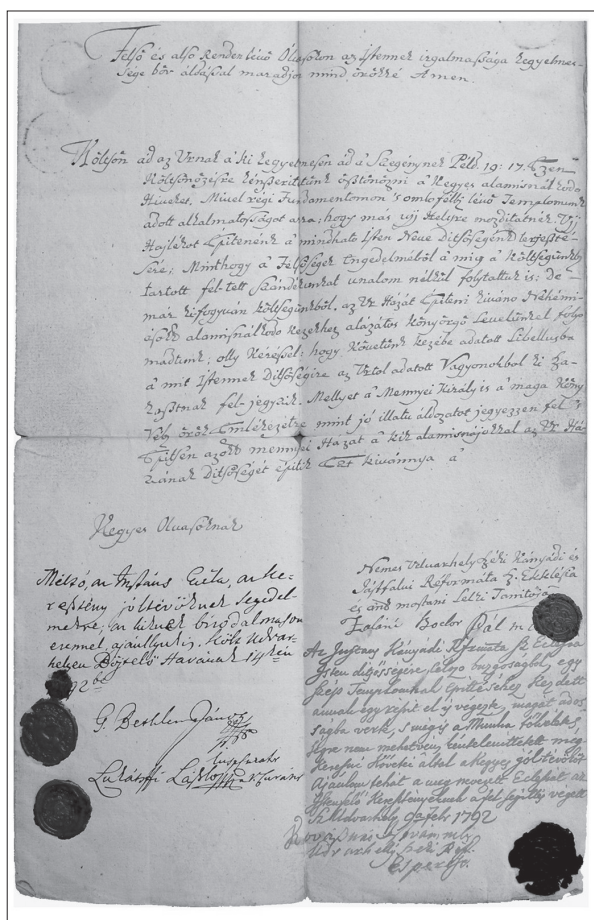 Felső és alsó Renden lévő Olvasókon az Istennek irgalmassága kegyelmes-
sége bőv áldással maradjon mind örökké Amen.
Kölcsön ád az Urnak a ki kegyelmesen ád a Szegénynek Péld. 19: 17.
Kölcsönözésre kénszeríttettünk ösztönözni a Kegyes alamisnálkodo
Hiveket. Mivel régi Fundamentomon s omlo félbe lévő Templomunk
adott alkalmatosságot arra; hogy más ujj Helyre mozdittatnék. Ujj
Hajlékot Épitenénk a mindható Isten Neve Ditsőségének terjeszté-
sére; Minthogy a Felsőségek engedelméből a mig a költségünkből
tartott fel-tett Szándékunkat unalom nélkül folytattuk is: de
már kifogyván költségünkből, az Ur Házát Epiteni kiváno Néhémi-
ások alamisnálkodo kezekhez alázatos könyörgö Levelünkel folyo
madtunk; olly Kéréssel: hogy Követünk kezébe adatott Libellusba
a mit Istennek Ditsőségire az Urtol adatott Vagyonokbol ki sza-
kasztnak fel-jegyzik. Mellyet a Mennyei Király is a maga Köny
vébe örök Emlékezetre mint jó illatu áldozatot jegyezzen fel 's
Épitsen azoknak mennyei Házat a kik alamisnájokkal az Ur Há-
zának Ditsőségét épitik Ezt kivánnya a'
Kegyes Olvasóknak
Nemes Udvarhely Széki Kányádi és
Jásfalvi Reformáta Sz. Ekklésia
és annak mostani Lelki Tanitoja
Zoláni Bodor Pál
Méltó, az Instáns Ecla, az ke-
resztény jóltévőknek segedel-
mekre, az kiknek bizodalmason
ezennel ajánllyuk. Költ Udvar-
helyen Böjtelő Havának 14kén
G. Bethlen János
Lukátsfi László
Az Instans Kányádi Reformata Sz Eclesia
Isten ditsőségire valo buzgoságbol, egy
szép Templomnak épittéséhez kezdett
annak egy részit el is végezte, magát ados
ságba verte, 's mégis a Munka tökélletes
ségre nem mehetvén, kéntelenittetett meg
keresni Követei által a kegyes jol tévőket
Ajánlom tehát a meg nevezett Eclesiát az
Istenfélő Keresztényeknek a fel segittés végett
Sz. Udvarhely 9a Febr 1792
Udvarhelly Széki Ref.
Esperest.